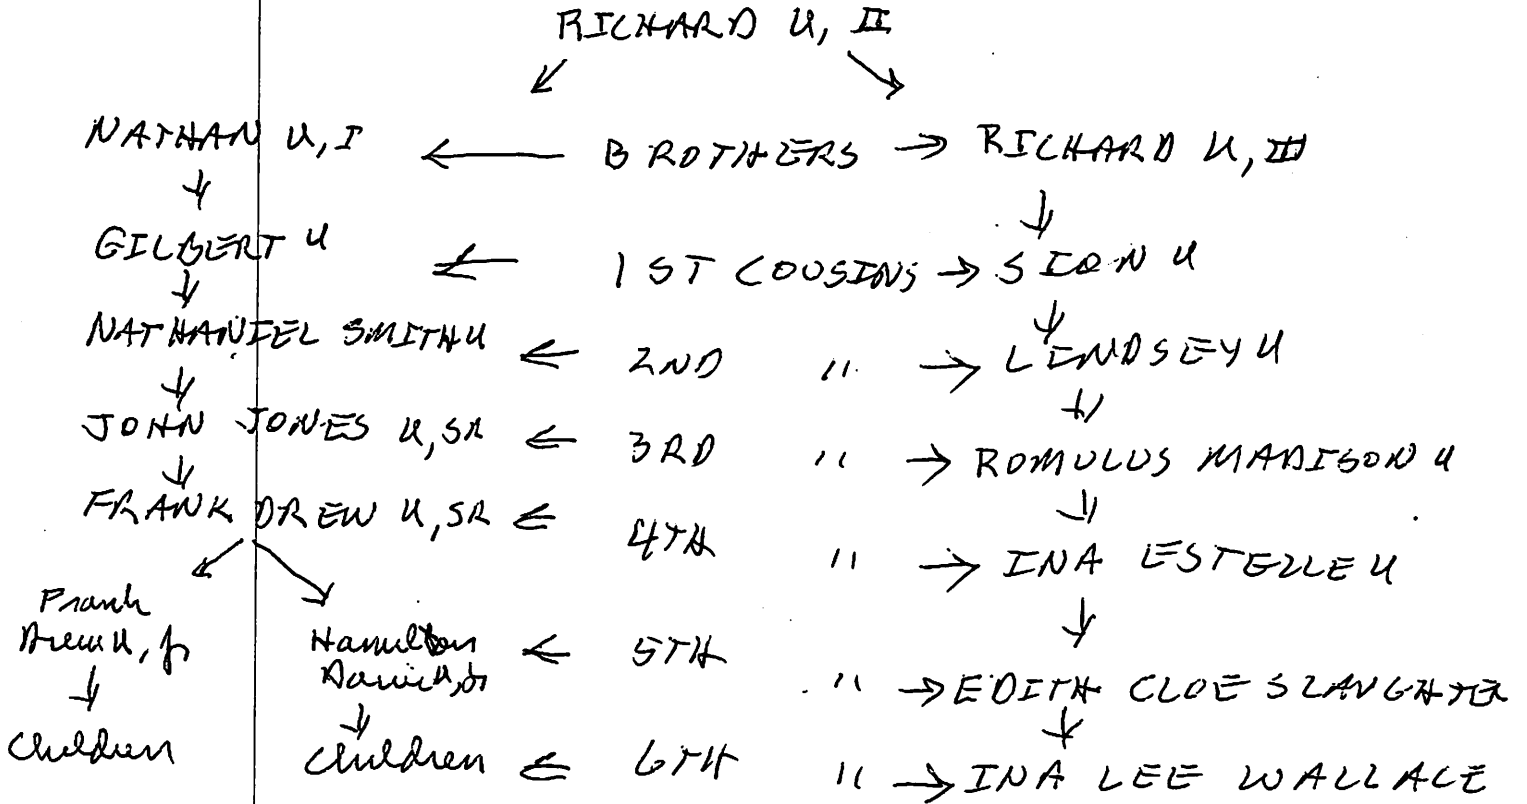 RICHARD U, II
NATHAN U, I BROTHERS RICHARD U, III
GILBERT U 1ST COUSINS SION U
NATHANIEL SMITH U 2ND " LINDSEY U
JOHN JONES U, SR 3RD " ROMULUS MADISON U
FRANK DREW U, SR 4TH " INA ESTELLE U
Frank
Drew U, Jr
Hamilton
5TH " EDITH CLOE SLAUGHTER
Children Children 6TH " INA LEE WALLACE